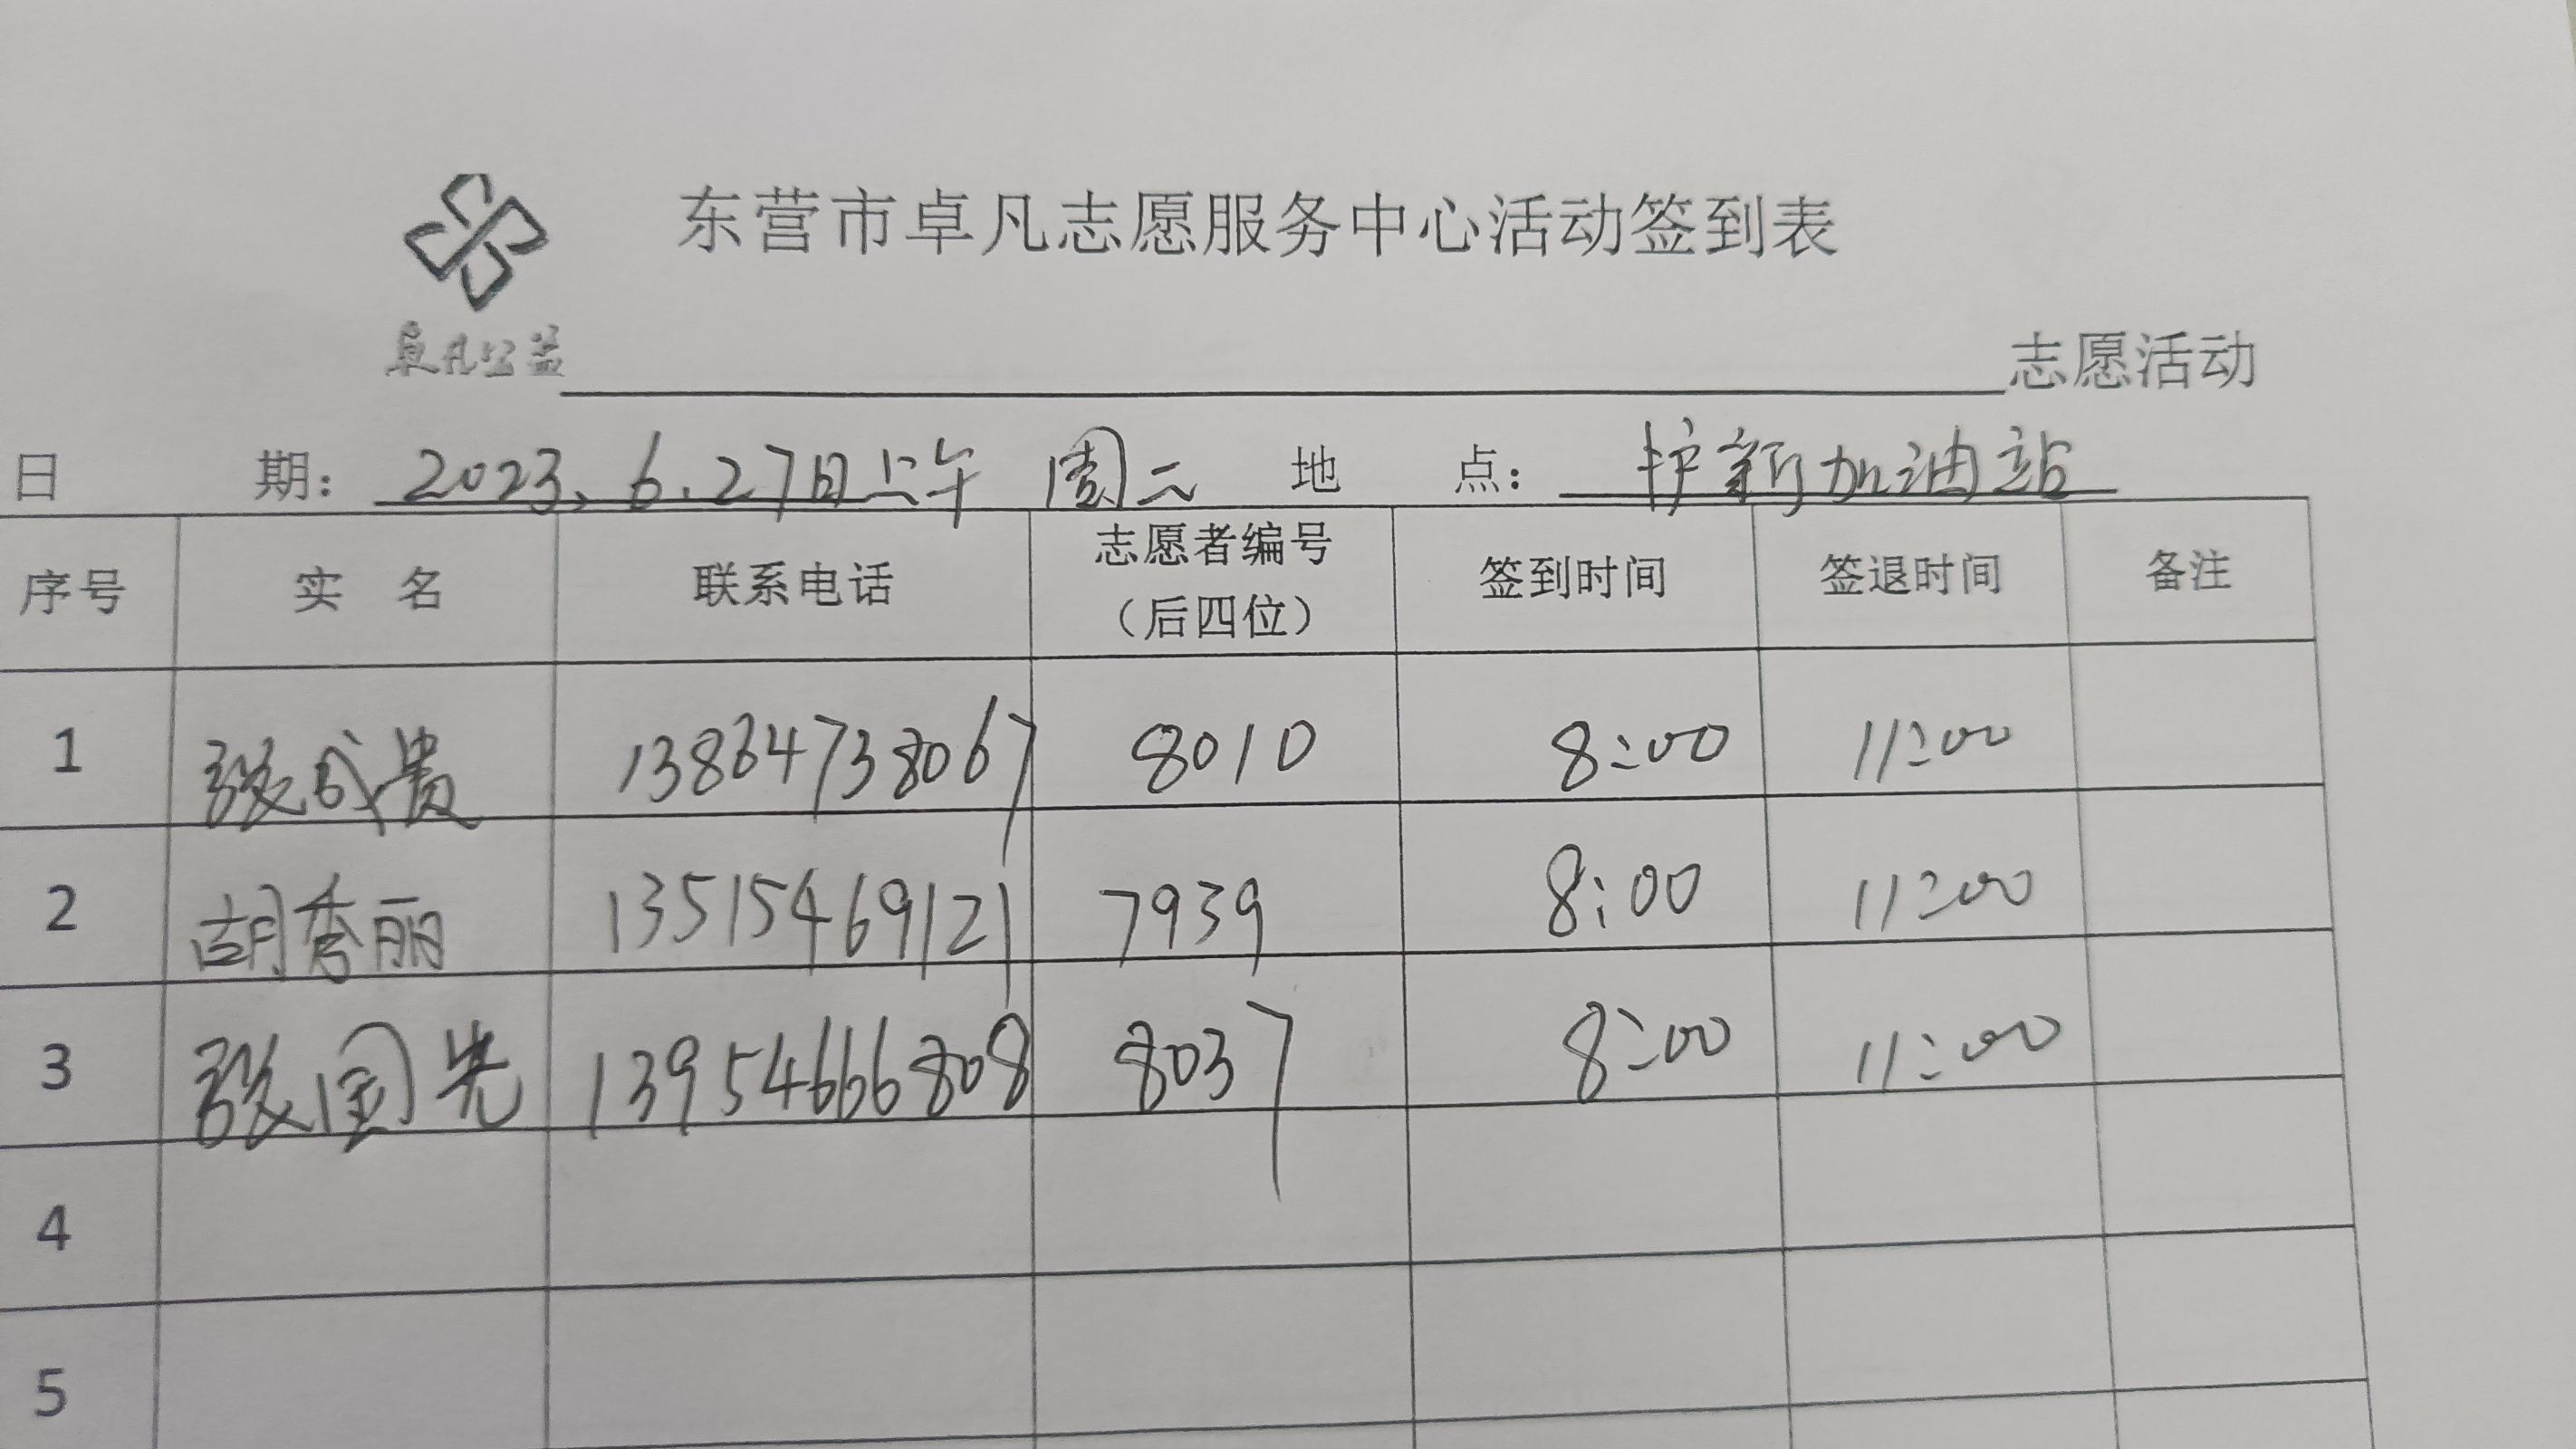 东营市卓凡志愿服务中心活动签到表
卓凡公益
志愿活动
日 期: 2023.6.27日上午 周二 地 点: 护新加油站
序号 实 名 联系电话 志愿者编号（后四位） 签到时间 签退时间 备注
1 张成贵 13864738067 8010 8:00 11:00
2 胡秀丽 13515469121 7939 8:00 11:00
3 张国光 13954666808 8037 8:00 11:00
4
5